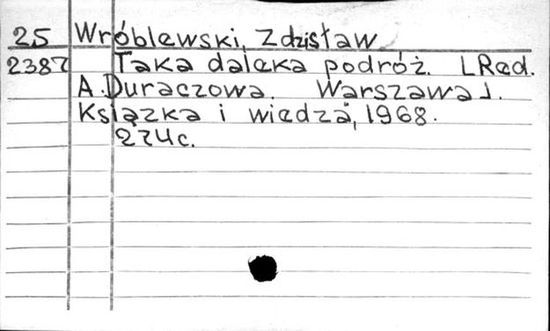 25 Wróblewski, Zdzisław
2387 Taka daleka podróż. [Red.
A. Duraczowa. Warszawa].
Książka i wiedza, 1968.
274c.